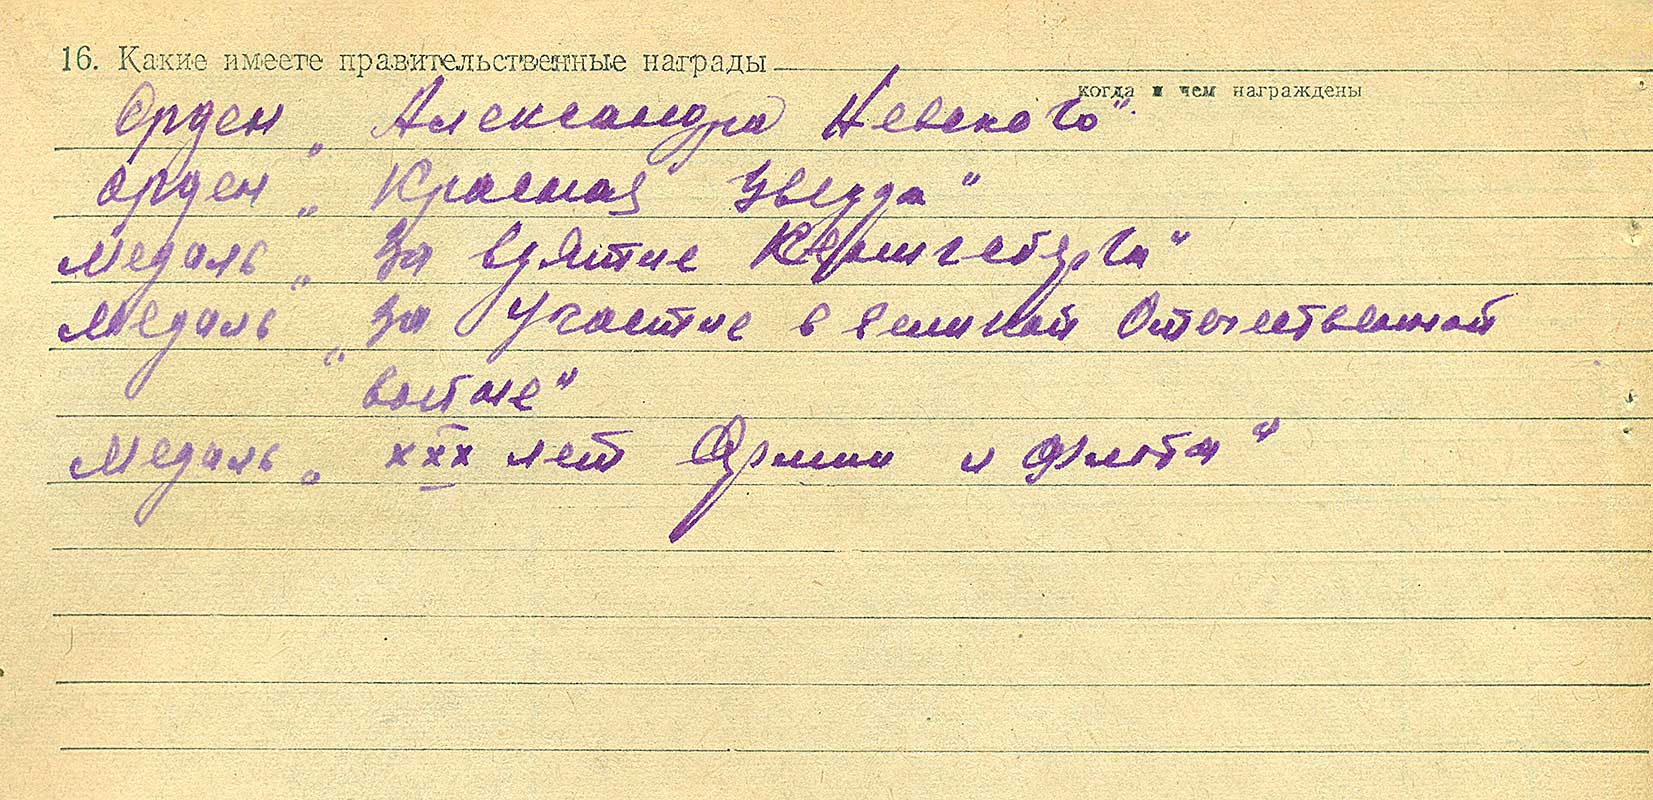 16. Какие имеете правительственные награды
когда и чем награждены
Орден „Александра Невского"
Орден „Красная Звезда"
Медаль „За взятие Кенигсберга"
Медаль „За Участие в великой Отечественной
войне"
Медаль „XXX лет Армии и Флота"